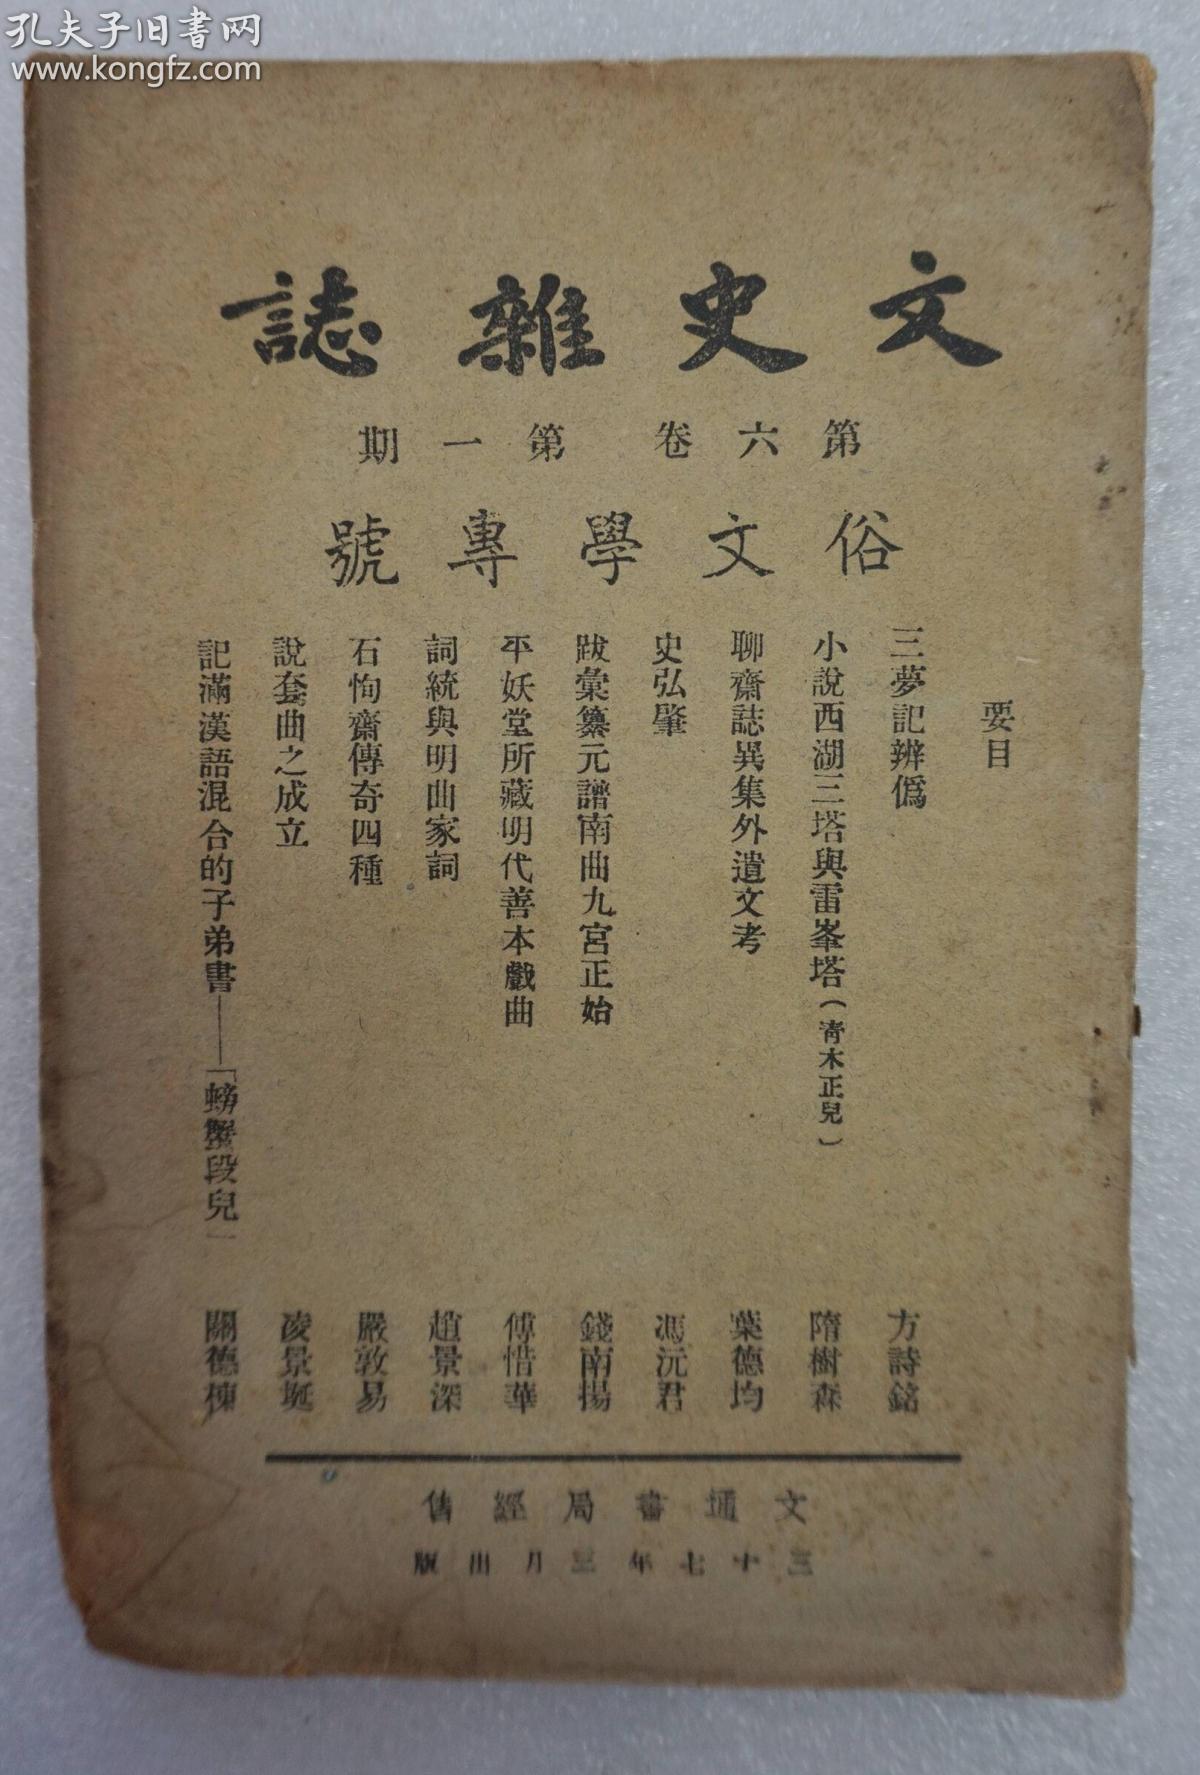 孔夫子旧書网
www.kongfz.com
文史雜誌
第六卷 第一期
俗文學專號
要目
三夢記辨僞 方詩銘
小說西湖三塔與雷峯塔(青木正兒) 隋樹森
聊齋誌異集外遺文考 葉德均
史弘肇 馮沅君
跋彙纂元譜南曲九宮正始 錢南揚
平妖堂所藏明代善本戲曲 傅惜華
詞統與明曲家詞 趙景深
石恂齋傳奇四種 嚴敦易
說套曲之成立 凌景埏
記滿漢語混合的子弟書——「螃蟹段兒」 關德棟
文通書局經售
三十七年三月出版